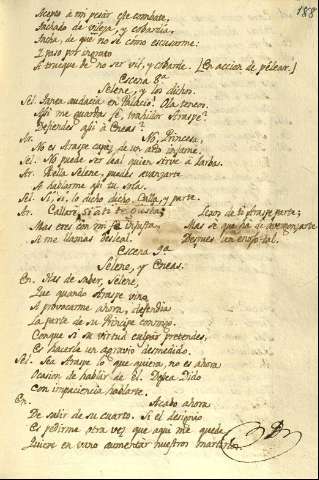 188
Acepto á mi pesár este combate,
Tachado de vileza, y cobardía,
Tacha, de que no sé cómo escusarme:
I paso por ingrato
A trueque de no ser vil, y cobarde. [En accion de peleár.]
Escena 8ª
Selene, y los dichos.
Sel. Tanta audacia en Palacio! Ola teneos.
Asi me guardas fé, traidor Araspe?
Defiendes asi á Eneas?
Ar. No, Princesa,
No es Araspe capáz de un acto infame.
Sel. No puede ser leal quien sirve á Iarba.
Ar. Bella Selene, puedes avanzarte
A hablarme asi tu sola.
Sel. Si, si, lo dicho dicho, Calla, y parte.
Ar. Callaré, si te gusta;
Mas eres con mi fé injusta,
Si me llamas desleal.
Lejos de ti Araspe parte;
Mas se que ha de avergonzarte
Despues tan enojo tal.
Escena 9ª
Selene, y Eneas.
En. Has de saber, Selene,
Que quando Araspe vino
A provocarme ahora, defendia
La parte de su Principe conmigo.
Conque si su virtud culpár pretendes,
Es hacerle un agravio desmedido.
Sel. Sea Araspe lo que quiera, no es ahora
Ocasion de hablár de él. Desea Dido
Con impaciencia hablarte.
En. Acabo ahora
De salir de su cuarto. Si el designio
Es pedirme otra vez que aqui me quede,
Quiere en vano aumentar nuestros martirios.